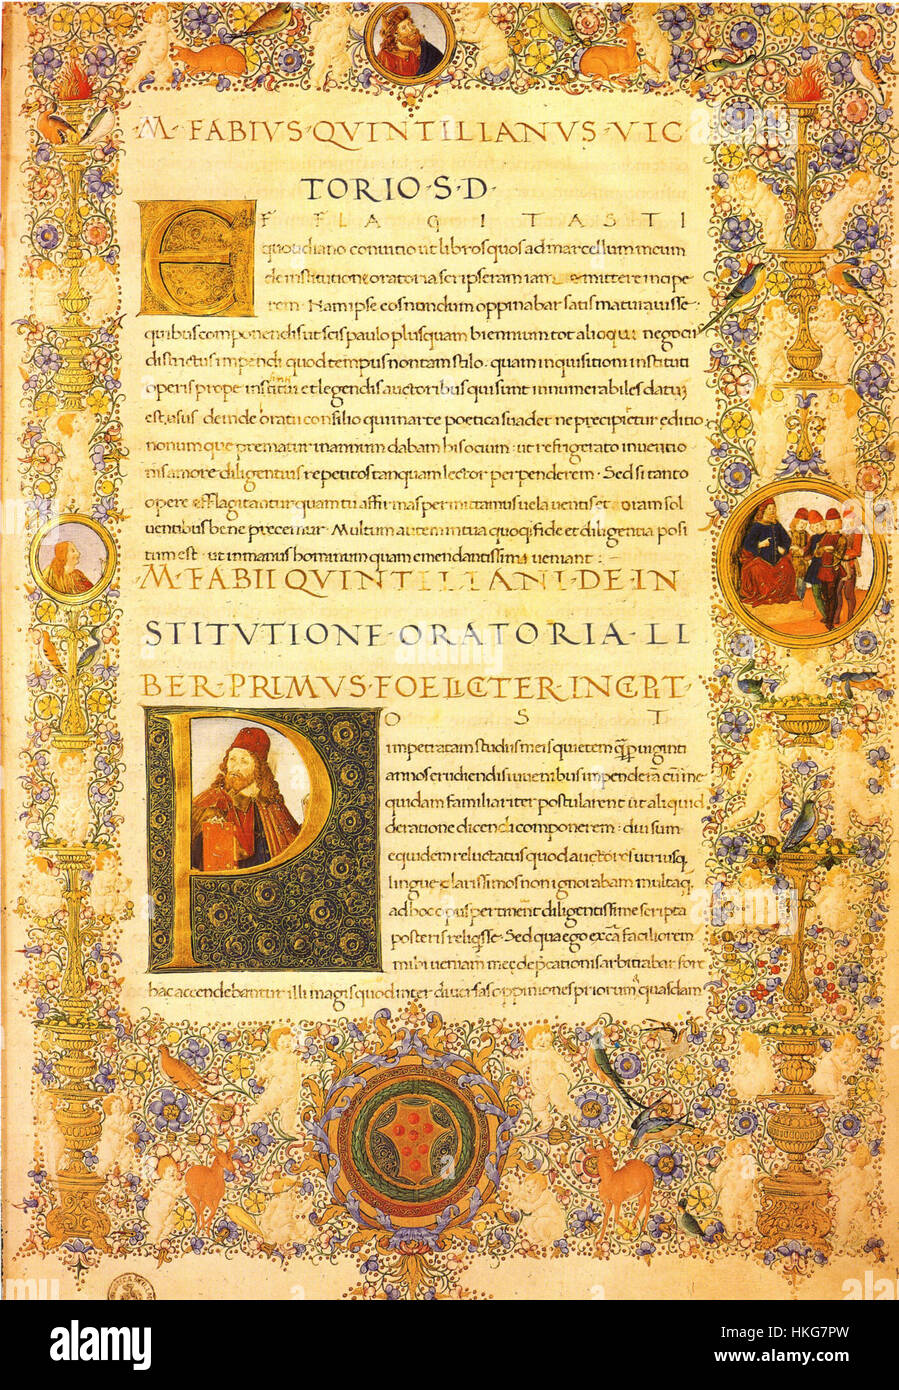 M·FABIVS·QVINTILIANVS·VIC
TORIO·S·D·
EFFLAGITASTI
quotidiano conuitio ut libros quos ad marcellum meum
de institutione oratoria scripseram iam emittere incipe
rem· Nam ipse eos nondum oppinabar satis maturuisse
quibus componendis ut scis paulo plusquam biennium tot alioqui negociis
districtus impendi quod tempus non tam stilo· quam inquisitioni instituti
operis prope et legendis auctoribus qui sunt innumerabiles datum
est· usus deinde oratii consilio qui in arte poetica suadet ne precipitetur editio
nonumque prematur in annum dabam his ocium: ut refrigerato inventio
nis amore diligentius repetitos tanquam lector perpenderem· Sed si tanto
opere efflagitantur quam tu affirmas permittamus uela uentis et oram sol
uentibus bene precemur· Multum autem in tua quoque fide et diligentia posi
tum est· ut in manus hominum quam emendatissimi ueniant·
M·FABII QVINTILIANI·DE·IN
STITVTIONE·ORATORIA·LI
BER·PRIMVS·FOELICITER·INCEPIT·
POST
impetratam studiis meis quietem que per uiginti
annos erudiendis iuuenibus impenderam cum me
quidam familiariter postularent ut aliquid
de ratione dicendi componerem: diu sum
equidem reluctatus quod auctores utriusque
lingue clarissimos non ignorabam multa que
ad hoc opus pertinent diligentissime scripta
posteris reliquisse· Sed qua ego ex causa faciliorem
mihi ueniam meę deprecationis arbitrabar fore
hac accendebantur illi magis quod inter diuersas oppiniones priorum quasdam
alamy stock photo
HKG7PW
www.alamy.com